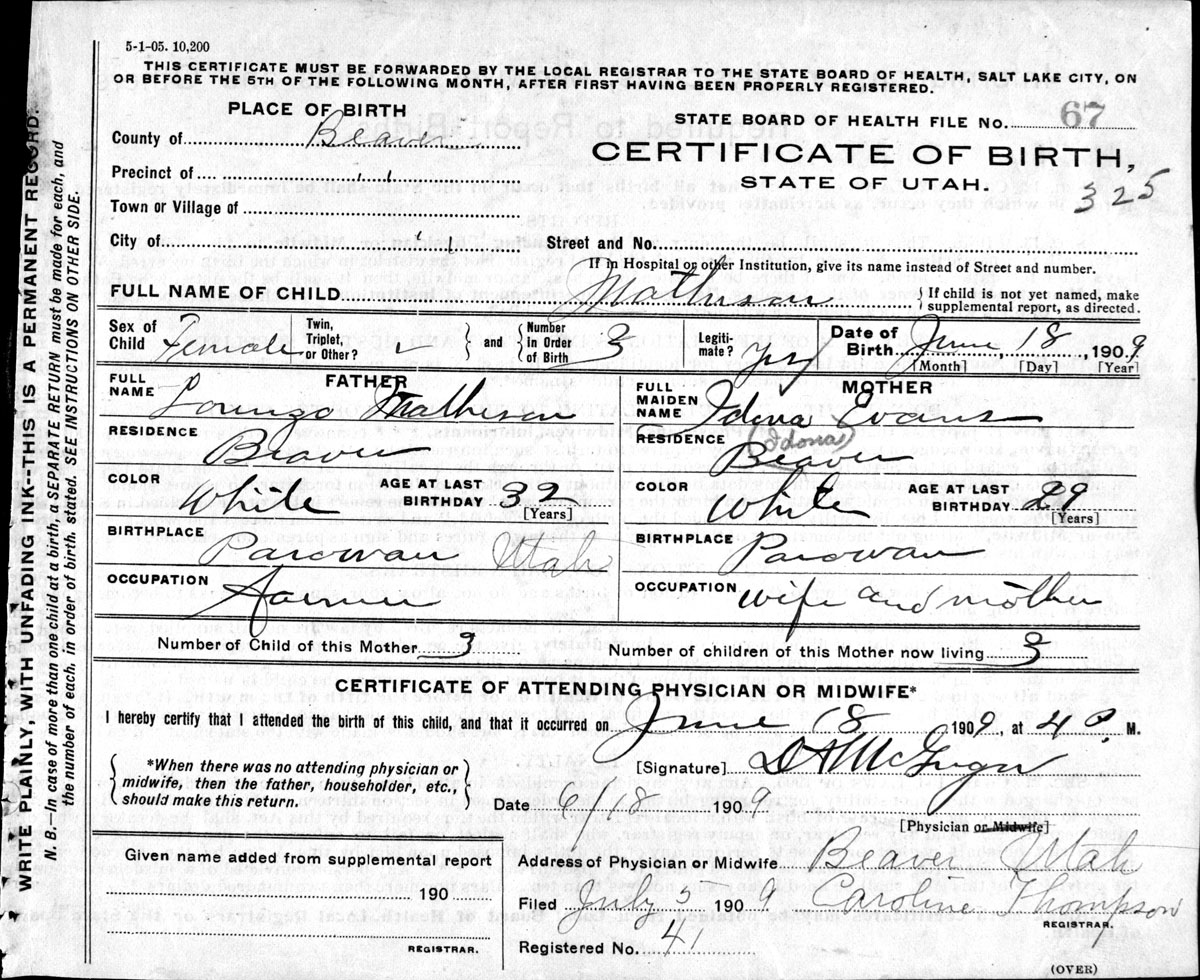 5-1-05. 10,200
THIS CERTIFICATE MUST BE FORWARDED BY THE LOCAL REGISTRAR TO THE STATE BOARD OF HEALTH, SALT LAKE CITY, ON
OR BEFORE THE 5TH OF THE FOLLOWING MONTH, AFTER FIRST HAVING BEEN PROPERLY REGISTERED.
PLACE OF BIRTH
STATE BOARD OF HEALTH FILE No. 67
County of Beaver
CERTIFICATE OF BIRTH,
Precinct of "
STATE OF UTAH.
325
Town or Village of
City of " Street and No.
If in Hospital or other Institution, give its name instead of Street and number.
FULL NAME OF CHILD Matheson { If child is not yet named, make
supplemental report, as directed.
Sex of Child Female Twin, Triplet, or Other? } and { Number in Order of Birth 3 Legiti-mate? Yes Date of Birth June 18, 1909
[Month] [Day] [Year]
FATHER
FULL NAME Lorenzo Matheson
RESIDENCE Beaver
COLOR White AGE AT LAST BIRTHDAY 32
[Years]
BIRTHPLACE Parowan Utah
OCCUPATION Farmer
MOTHER
FULL MAIDEN NAME Idona Evans
(Idona)
RESIDENCE Beaver
COLOR White AGE AT LAST BIRTHDAY 29
[Years]
BIRTHPLACE Parowan
OCCUPATION wife and mother
Number of Child of this Mother 3 Number of children of this Mother now living 3
CERTIFICATE OF ATTENDING PHYSICIAN OR MIDWIFE*
I hereby certify that I attended the birth of this child, and that it occurred on June 18 1909, at 4 P. M.
{ *When there was no attending physician or
midwife, then the father, householder, etc.,
should make this return. }
[Signature] D A McGregor
Date 6 18 1909
[Physician or Midwife]
Given name added from supplemental report
190
REGISTRAR.
Address of Physician or Midwife Beaver Utah
Filed July 3 1909 Caroline Thompson
REGISTRAR.
Registered No. 41
(OVER)
WRITE PLAINLY WITH UNFADING INK--THIS IS A PERMANENT RECORD.
N. B.—In case of more than one child at a birth, a SEPARATE RETURN must be made for each, and
the number of each, in order of birth, stated. SEE INSTRUCTIONS ON OTHER SIDE.